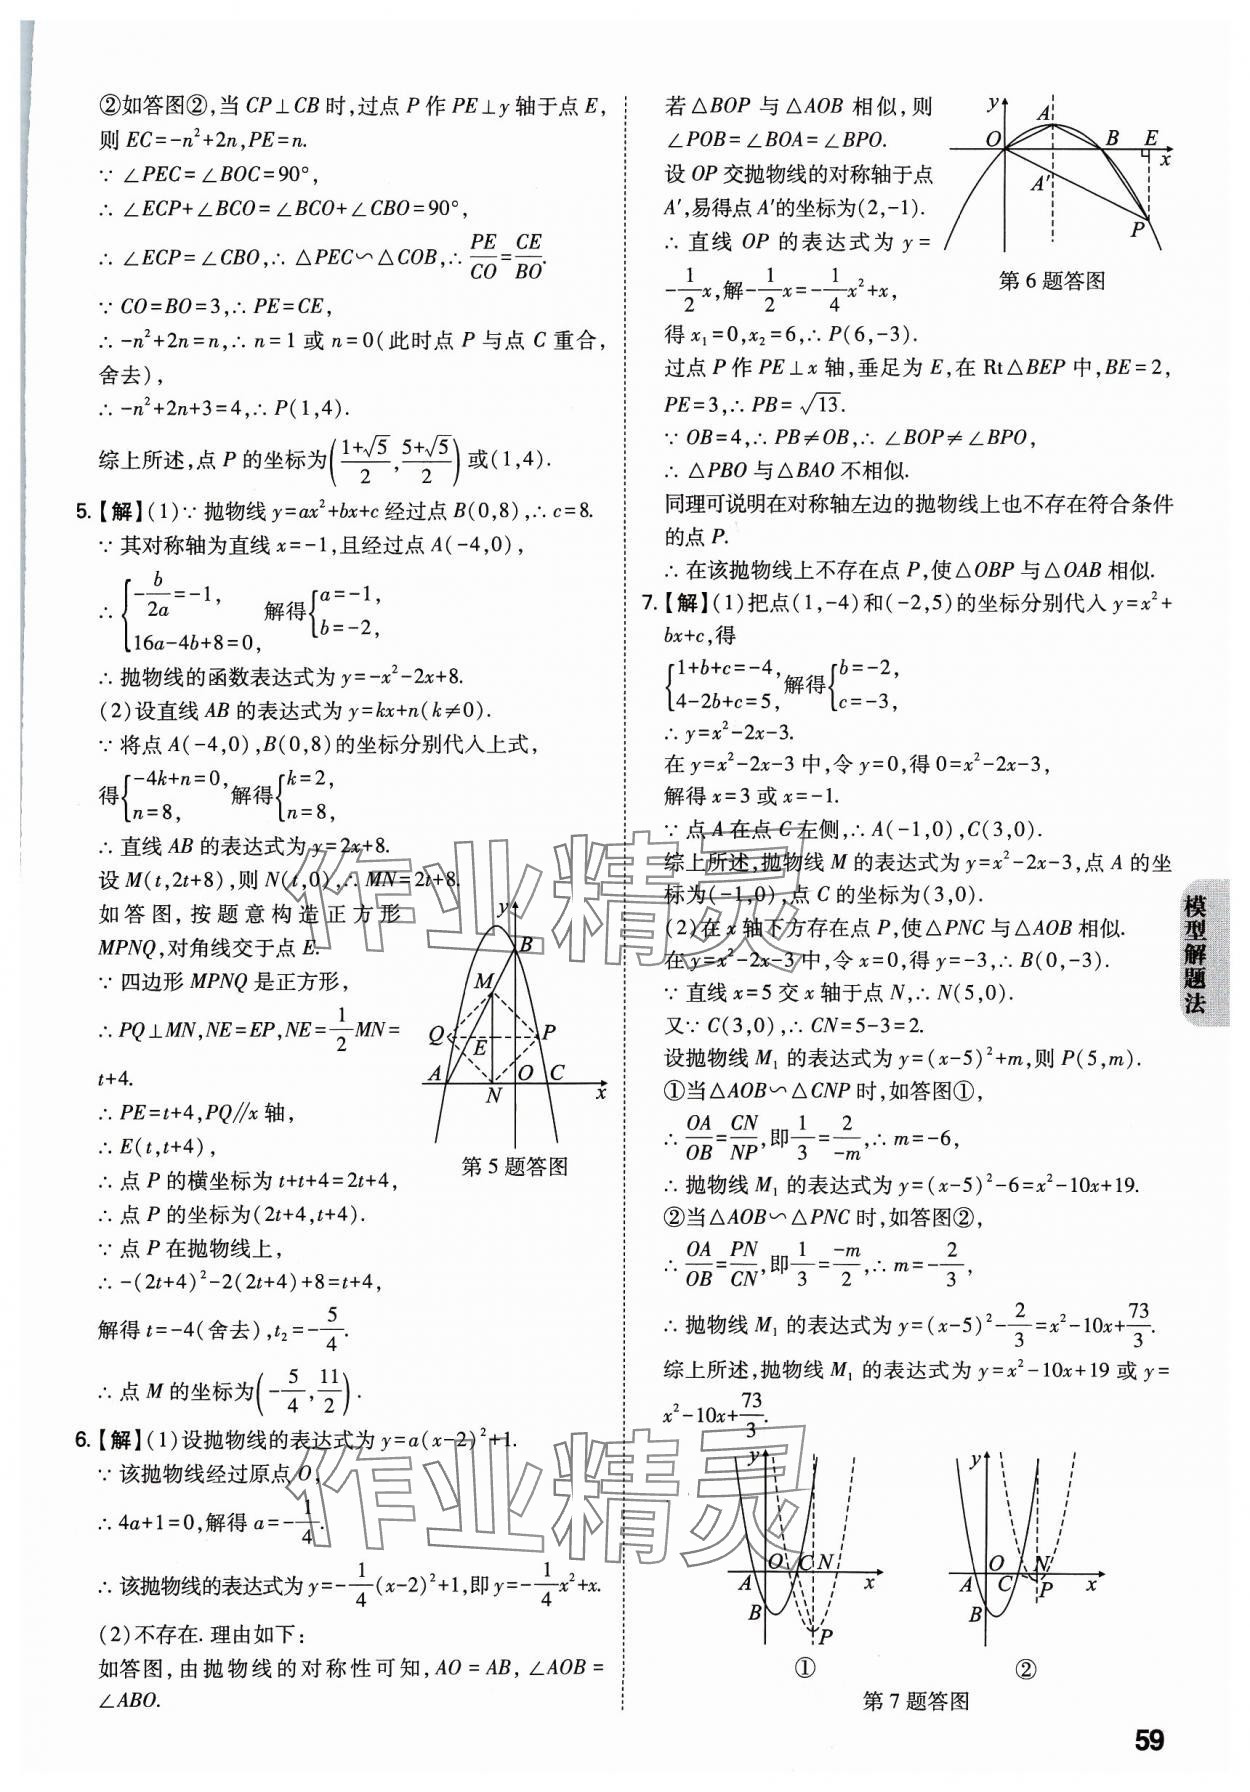 ②如答图②,当 CP⊥CB 时,过点 P 作 PE⊥y 轴于点 E,
则 EC=-n²+2n,PE=n.
∵ ∠PEC=∠BOC=90°,
∴ ∠ECP+∠BCO=∠BCO+∠CBO=90°,
∴ ∠ECP=∠CBO,∴ △PEC∽△COB,∴ PE/CO=CE/BO.
∵ CO=BO=3,∴ PE=CE,
∴ -n²+2n=n,∴ n=1 或 n=0(此时点 P 与点 C 重合,
舍去),
∴ -n²+2n+3=4,∴ P(1,4).
综上所述,点 P 的坐标为((1+√5)/2,(5+√5)/2)或(1,4).
5.【解】(1)∵ 抛物线 y=ax²+bx+c 经过点 B(0,8),∴ c=8.
∵ 其对称轴为直线 x=-1,且经过点 A(-4,0),
∴ {-b/2a=-1, 16a-4b+8=0, 解得{a=-1, b=-2,
∴ 抛物线的函数表达式为 y=-x²-2x+8.
(2)设直线 AB 的表达式为 y=kx+n(k≠0).
∵ 将点 A(-4,0),B(0,8)的坐标分别代入上式,
得{-4k+n=0, n=8, 解得{k=2, n=8,
∴ 直线 AB 的表达式为 y=2x+8.
设 M(t,2t+8),则 N(t,0),∴ MN=2t+8.
如答图,按题意构造正方形
MPNQ,对角线交于点 E.
∵ 四边形 MPNQ 是正方形,
∴ PQ⊥MN,NE=EP,NE=1/2 MN=
t+4.
∴ PE=t+4,PQ∥x 轴,
∴ E(t,t+4),
∴ 点 P 的横坐标为 t+t+4=2t+4,
∴ 点 P 的坐标为(2t+4,t+4).
∵ 点 P 在抛物线上,
∴ -(2t+4)²-2(2t+4)+8=t+4,
解得 t=-4(舍去),t₂=-5/4.
∴ 点 M 的坐标为(-5/4,11/2).
y
B
M
Q
E
P
A
N
O
C
x
第 5 题答图
6.【解】(1)设抛物线的表达式为 y=a(x-2)²+1.
∵ 该抛物线经过原点 O,
∴ 4a+1=0,解得 a=-1/4.
∴ 该抛物线的表达式为 y=-1/4(x-2)²+1,即 y=-1/4x²+x.
(2)不存在. 理由如下:
如答图,由抛物线的对称性可知,AO=AB,∠AOB=
∠ABO.
若△BOP 与△AOB 相似,则
∠POB=∠BOA=∠BPO.
设 OP 交抛物线的对称轴于点
A′,易得点 A′的坐标为(2,-1).
∴ 直线 OP 的表达式为 y=
-1/2x,解-1/2x=-1/4x²+x,
得 x₁=0,x₂=6,∴ P(6,-3).
y
A
O
B
E
x
A′
P
第 6 题答图
过点 P 作 PE⊥x 轴,垂足为 E,在 Rt△BEP 中,BE=2,
PE=3,∴ PB=√13.
∵ OB=4,∴ PB≠OB,∴ ∠BOP≠∠BPO,
∴ △PBO 与△BAO 不相似.
同理可说明在对称轴左边的抛物线上也不存在符合条件
的点 P.
∴ 在该抛物线上不存在点 P,使△OBP 与△OAB 相似.
7.【解】(1)把点(1,-4)和(-2,5)的坐标分别代入 y=x²+
bx+c,得
{1+b+c=-4, 4-2b+c=5, 解得{b=-2, c=-3,
∴ y=x²-2x-3.
在 y=x²-2x-3 中,令 y=0,得 0=x²-2x-3,
解得 x=3 或 x=-1.
∵ 点 A 在点 C 左侧,∴ A(-1,0),C(3,0).
综上所述,抛物线 M 的表达式为 y=x²-2x-3,点 A 的坐
标为(-1,0),点 C 的坐标为(3,0).
(2)在 x 轴下方存在点 P,使△PNC 与△AOB 相似.
在 y=x²-2x-3 中,令 x=0,得 y=-3,∴ B(0,-3).
∵ 直线 x=5 交 x 轴于点 N,∴ N(5,0).
又∵ C(3,0),∴ CN=5-3=2.
设抛物线 M₁ 的表达式为 y=(x-5)²+m,则 P(5,m).
①当△AOB∽△CNP 时,如答图①,
∴ OA/OB=CN/NP,即1/3=2/-m,∴ m=-6,
∴ 抛物线 M₁ 的表达式为 y=(x-5)²-6=x²-10x+19.
②当△AOB∽△PNC 时,如答图②,
∴ OA/OB=PN/CN,即1/3=-m/2,∴ m=-2/3,
∴ 抛物线 M₁ 的表达式为 y=(x-5)²-2/3=x²-10x+73/3.
综上所述,抛物线 M₁ 的表达式为 y=x²-10x+19 或 y=
x²-10x+73/3.
y
O
C
N
A
x
B
P
①
y
O
N
A
C
P
x
B
②
第 7 题答图
模型解题法
作业精灵
作业精灵
59